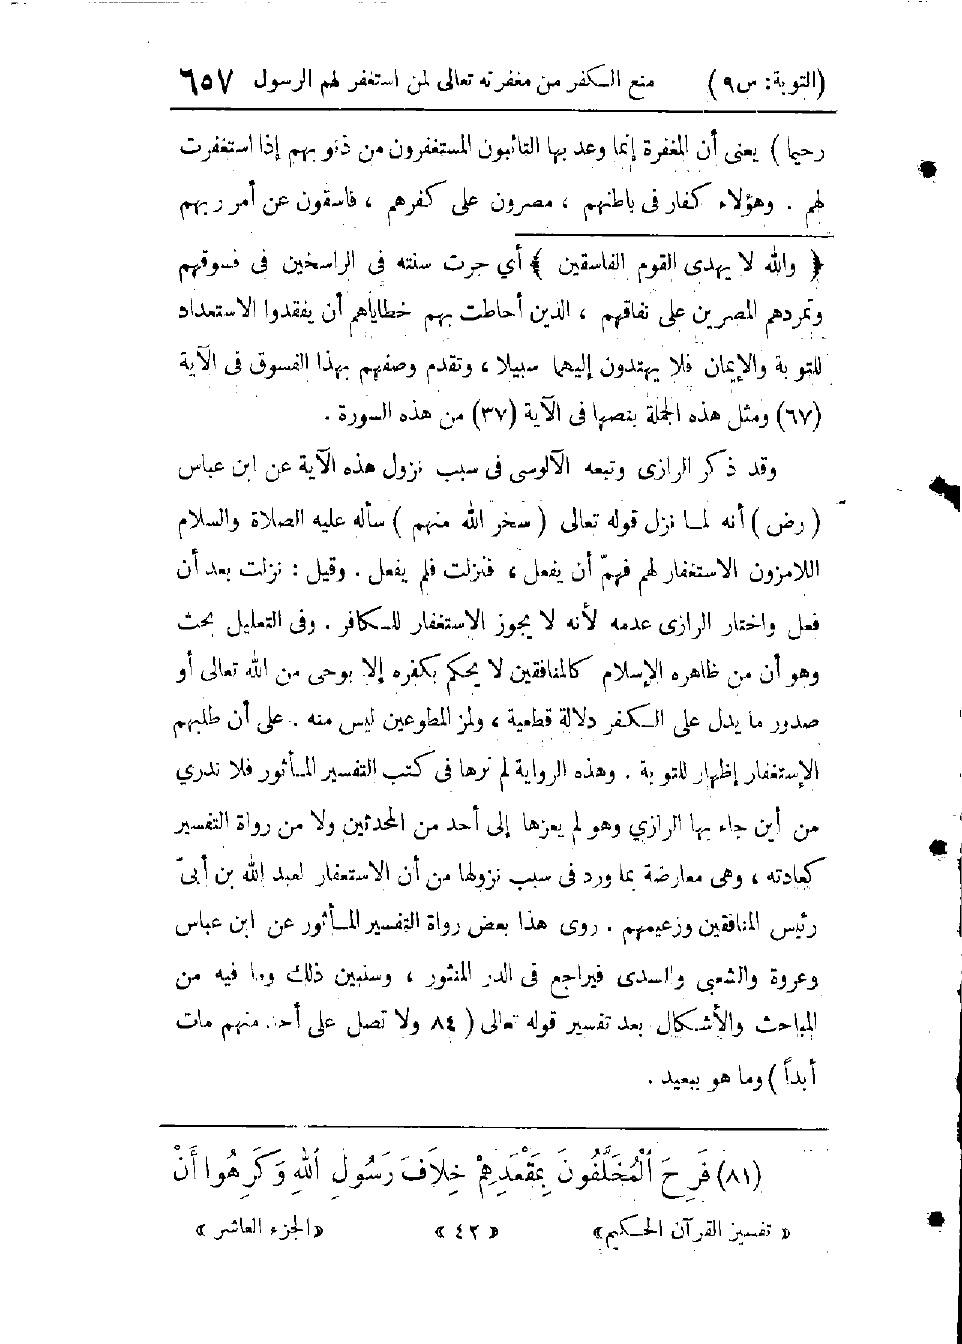 (التوبة: س٩) منع الكفر من مغفرته تعالى لمن استغفر لهم الرسول ٦٥٧
رحيما ) يعنى أن المغفرة إنما وعد بها التائبون المستغفرون من ذنوبهم إذا استغفرت
لهم . وهؤلاء كفار فى باطنهم ، مصرون على كفرهم ، فاسقون عن أمر ربهم
﴿ والله لا يهدى القوم الفاسقين ﴾ أي جرت سنته فى الراسخين فى فسوقهم
وتمردهم المصرين على نفاقهم ، الذين أحاطت بهم خطاياهم أن يفقدوا الاستعداد
للتوبة والإيمان فلا يهتدون إليهما سبيلا ، وتقدم وصفهم بهذا الفسوق فى الآية
(٦٧) ومثل هذه الجملة بنصها فى الآية (٣٧) من هذه السورة .
وقد ذكر الرازى وتبعه الآلوسى فى سبب نزول هذه الآية عن ابن عباس
( رض ) أنه لمـا نزل قوله تعالى ( سخر الله منهم ) سأله عليه الصلاة والسلام
اللامزون الاستغفار لهم فهمّ أن يفعل ، فنزلت فلم يفعل . وقيل : نزلت بعد أن
فعل واختار الرازى عدمه لأنه لا يجوز الاستغفار للكافر . وفى التعليل بحث
وهو أن من ظاهره الإسلام كالمنافقين لا يحكم بكفره إلا بوحى من الله تعالى أو
صدور ما يدل على الكفر دلالة قطعية ، ولمز المطوعين ليس منه . على أن طلبهم
الإستغفار إظهار للتوبة . وهذه الرواية لم نرها فى كتب التفسير المـأثور فلا ندري
من أين جاء بها الرازي وهو لم يعزها إلى أحد من المحدثين ولا من رواة التفسير
كعادته ، وهى معارضة بما ورد فى سبب نزولها من أن الاستغفار لعبد الله بن أبىّ
رئيس المنافقين وزعيمهم . روى هذا بعض رواة التفسير المـأثور عن ابن عباس
وعروة والشعبى والسدى فيراجع فى الدر المنثور ، وسنبين ذلك وما فيه من
المباحث والأشكال بعد تفسير قوله تعالى ( ٨٤ ولا تصل على أحد منهم مات
أبداً ) وما هو ببعيد .
(٨١) فَرِحَ ٱلْمُخَلَّفُونَ بِمَقْعَدِهِمْ خِلاَفَ رَسُولِ ٱللهِ وَكَرِهُوا أَنْ
« تفسير القرآن الحكيم » « ٤٢ » « الجزء العاشر »